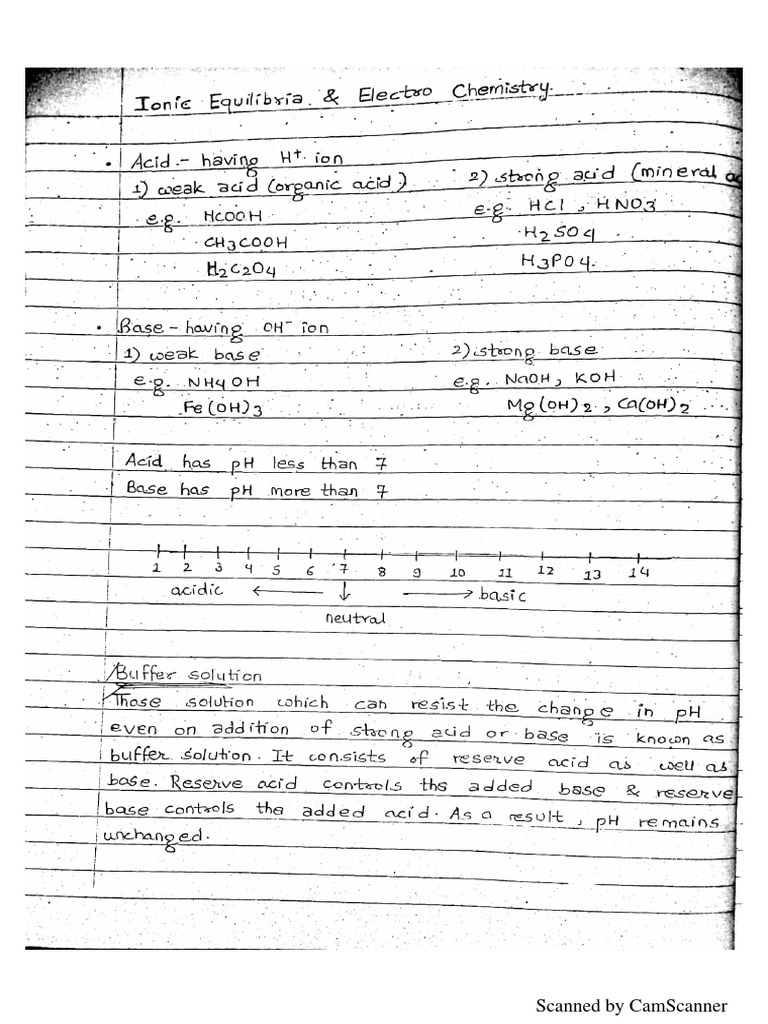 Ionic Equilibria & Electro Chemistry.
• Acid - having H+ ion
1) weak acid (organic acid) 2) strong acid (mineral
e.g. HCOOH e.g. HCl, HNO3
CH3COOH H2SO4
H2C2O4 H3PO4.
• Base - having OH- ion
1) weak base 2) strong base
e.g. NH4OH e.g. NaOH, KOH
Fe(OH)3 Mg(OH)2, Ca(OH)2
Acid has pH less than 7
Base has pH more than 7
1 2 3 4 5 6 7 8 9 10 11 12 13 14
acidic ← ↓ → basic
neutral
Buffer solution
Those solution which can resist the change in pH
even on addition of strong acid or base is known as
buffer solution. It consists of reserve acid as well as
base. Reserve acid controls the added base & reserve
base controls the added acid. As a result, pH remains
unchanged.
Scanned by CamScanner